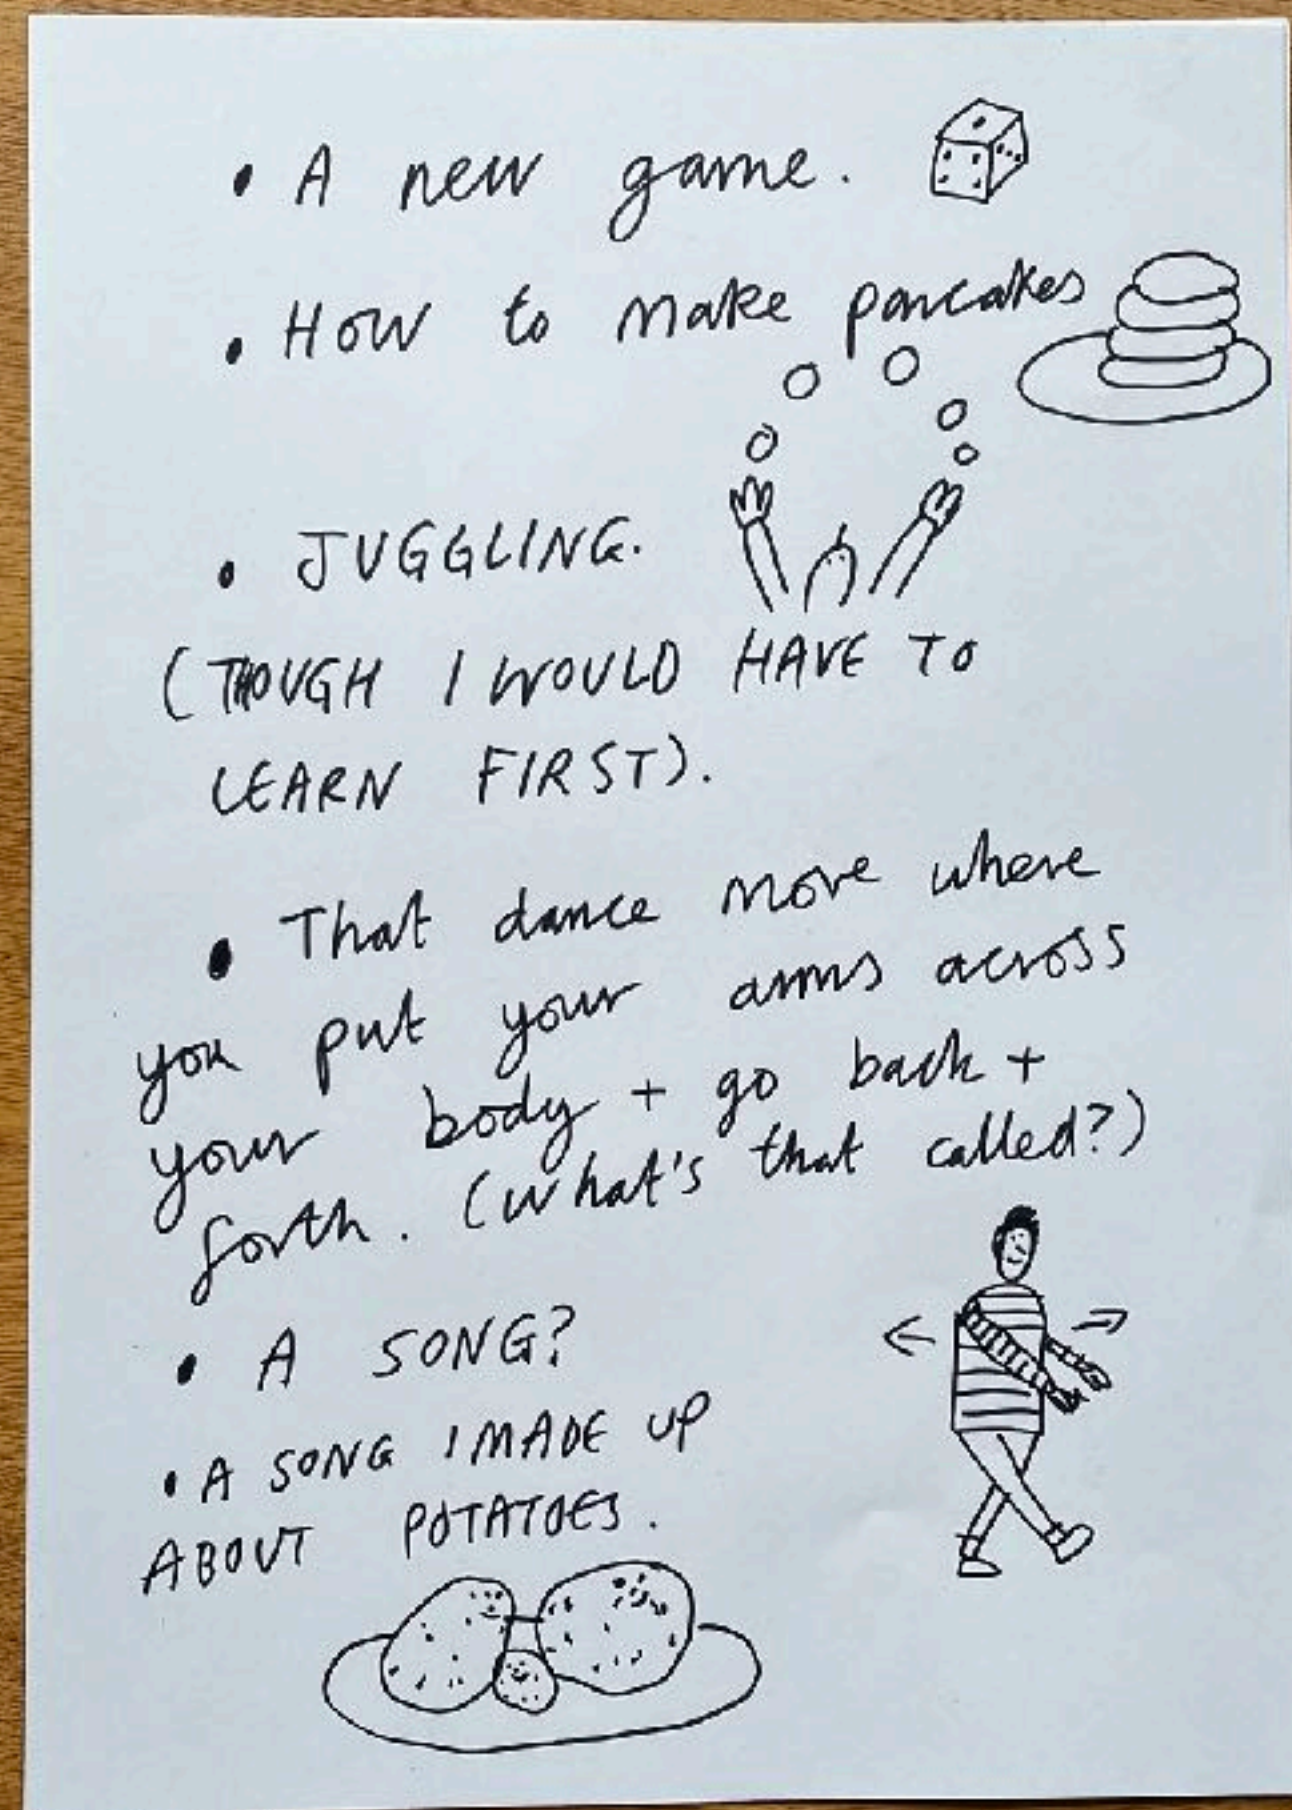 • A new game.
• How to make pancakes
• JUGGLING.
(THOUGH I WOULD HAVE TO
LEARN FIRST).
• That dance move where
you put your arms across
your body + go back +
forth. (what's that called?)
• A SONG?
• A SONG I MADE UP
ABOUT POTATOES.